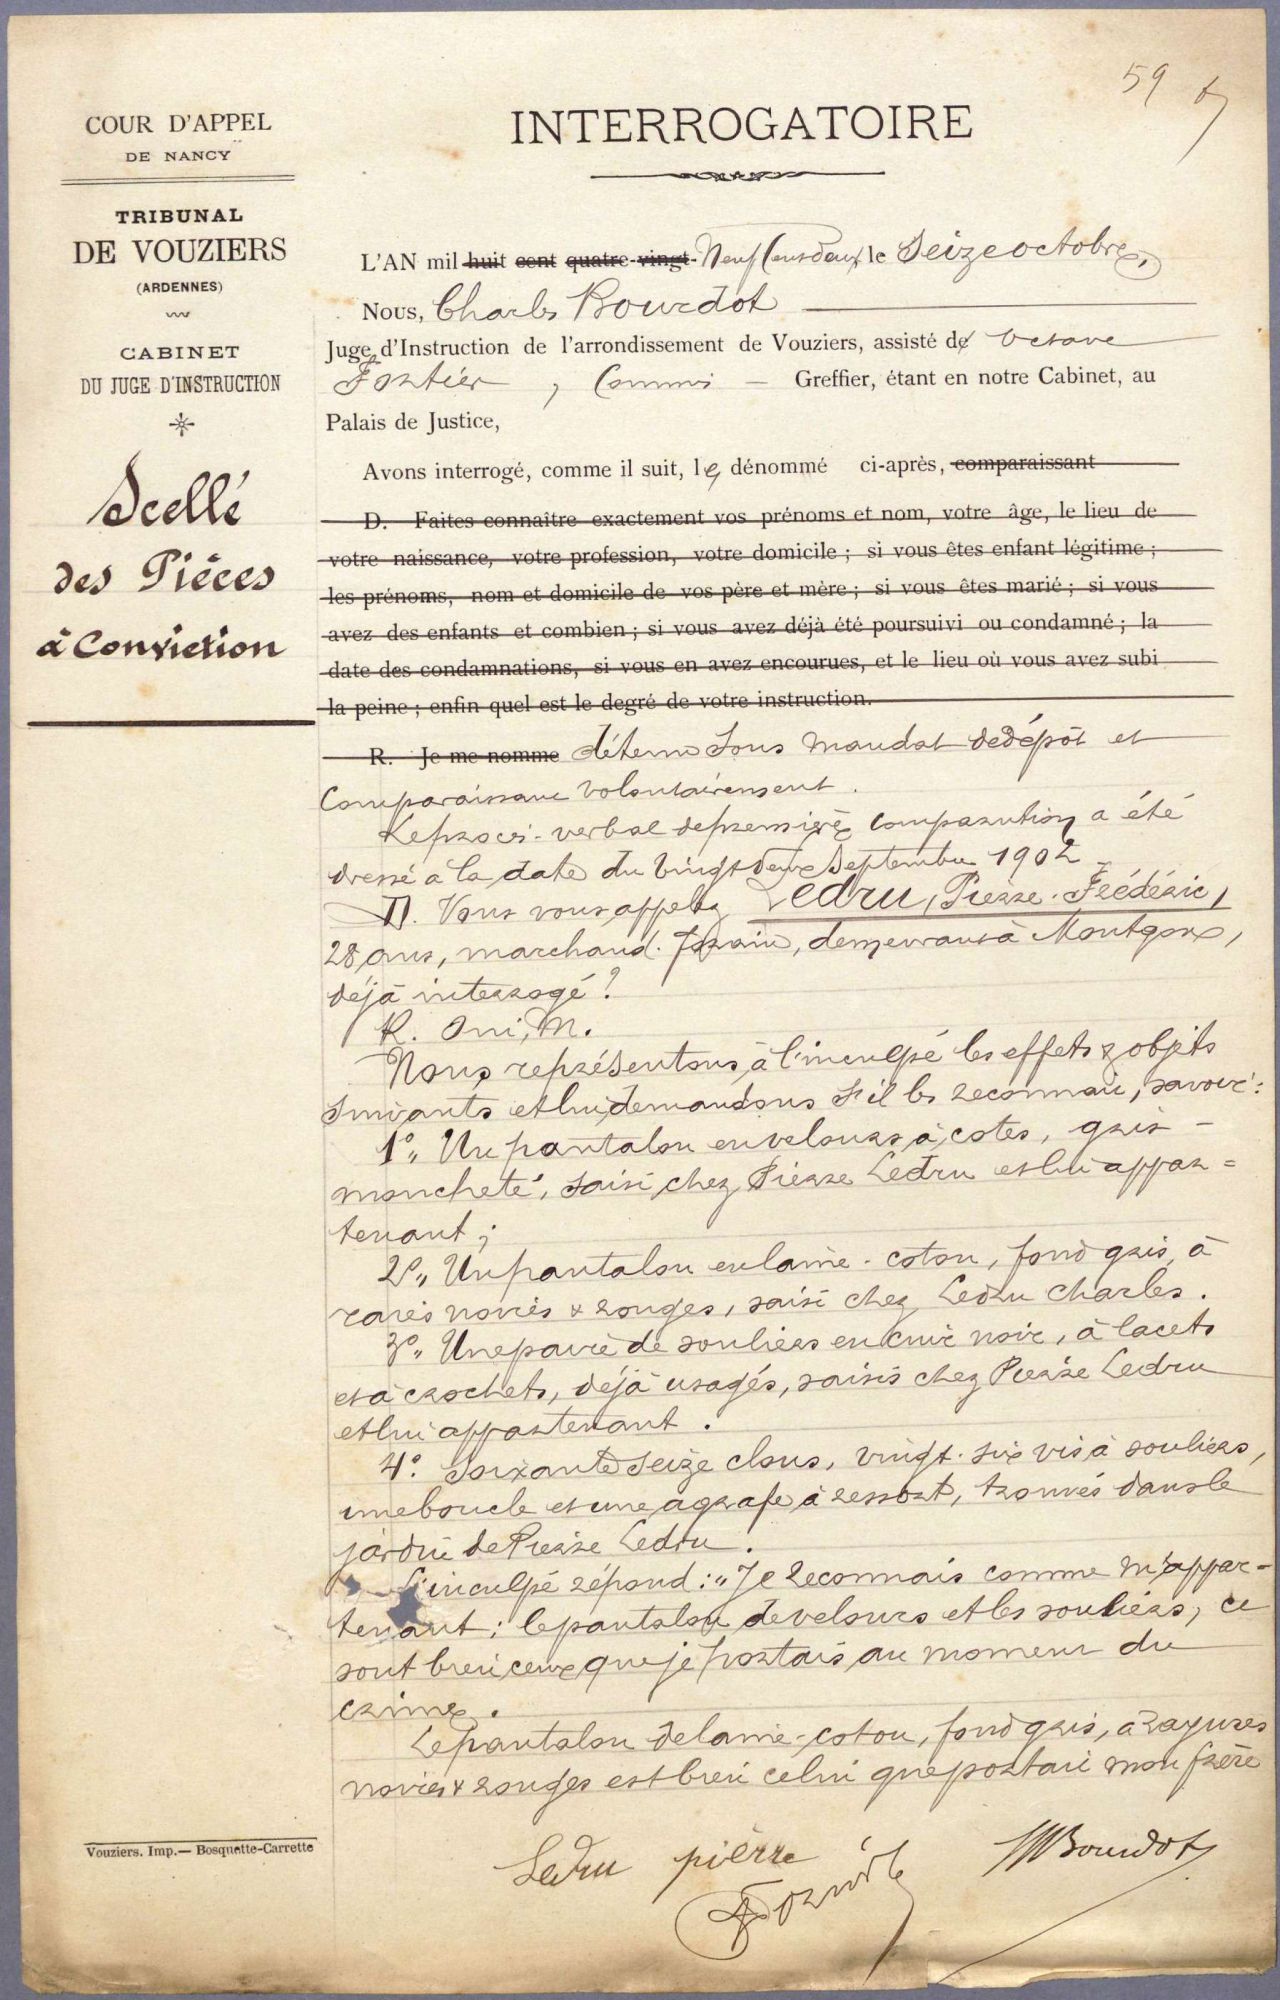 59
COUR D'APPEL
DE NANCY
TRIBUNAL
DE VOUZIERS
(ARDENNES)
CABINET
DU JUGE D'INSTRUCTION
Scellé
des Pièces
à Conviction
INTERROGATOIRE
L'AN mil huit cent quatre-vingt- Neuf Cent deux le Seize octobre,
Nous, Charles Bourdot
Juge d'Instruction de l'arrondissement de Vouziers, assisté de Octave
Fortier, Commis — Greffier, étant en notre Cabinet, au
Palais de Justice,
Avons interrogé, comme il suit, le dénommé ci-après, comparaissant
D. Faites connaître exactement vos prénoms et nom, votre âge, le lieu de
votre naissance, votre profession, votre domicile ; si vous êtes enfant légitime ;
les prénoms, nom et domicile de vos père et mère ; si vous êtes marié ; si vous
avez des enfants et combien ; si vous avez déjà été poursuivi ou condamné ; la
date des condamnations, si vous en avez encourues, et le lieu où vous avez subi
la peine ; enfin quel est le degré de votre instruction.
R. Je me nomme détenu sous mandat de dépôt et
Comparaissant volontairement.
Le procès-verbal de première comparution a été
dressé à la date du vingt deux Septembre 1902
D. Vous vous appelez Ledru, Pierre-Frédéric,
28 ans, marchand-forain, demeurant à Montgon,
déjà interrogé ?
R. Oui, M.
Nous représentons à l'inculpé les effets & objets
suivants et lui demandons s'il les reconnait, savoir :
1°,, Un pantalon en velours à cotes, gris-
moucheté, saisi chez Pierre Ledru et lui appar=
tenant ;
2°,, Un pantalon en laine-coton, fond gris, à
raies noires & rouges, saisi chez Ledru Charles.
3°,, Une paire de souliers en cuir noir, à lacets
et à crochets, déjà usagés, saisis chez Pierre Ledru
et lui appartenant.
4°. Soixante seize clous, vingt-six vis à souliers,
une boucle et une agrafe à ressort, trouvés dans le
jardin de Pierre Ledru.
L'inculpé répond : "Je reconnais comme m'appar-
tenant : le pantalon de velours et les souliers, ce
sont bien ceux que je portais au moment du
crime.
Le pantalon de laine-coton, fond gris, à rayures
noires & rouges est bien celui que portait mon frère
Vouziers. Imp.— Bosquette-Carrette
Ledru pierre
Bourdot